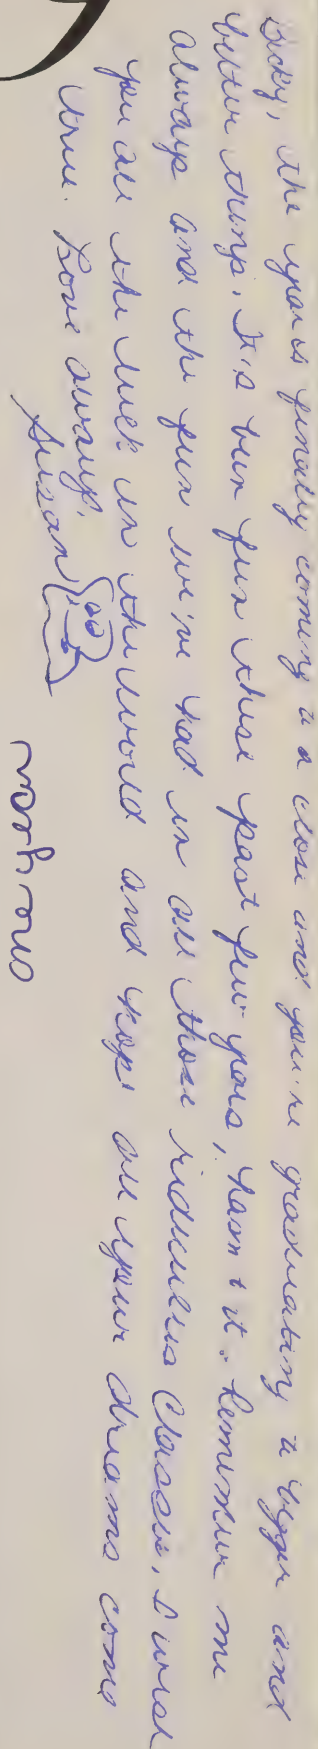 Becky, the year is finally coming to a close and you're graduating to bigger and
better things. It's bun fun these past few years, hasn't it. Remember me
always and the fun we've had in all those ridiculous classes, I wish
you all the luck in the world and hope all your dreams come
true. Love always,
Susan